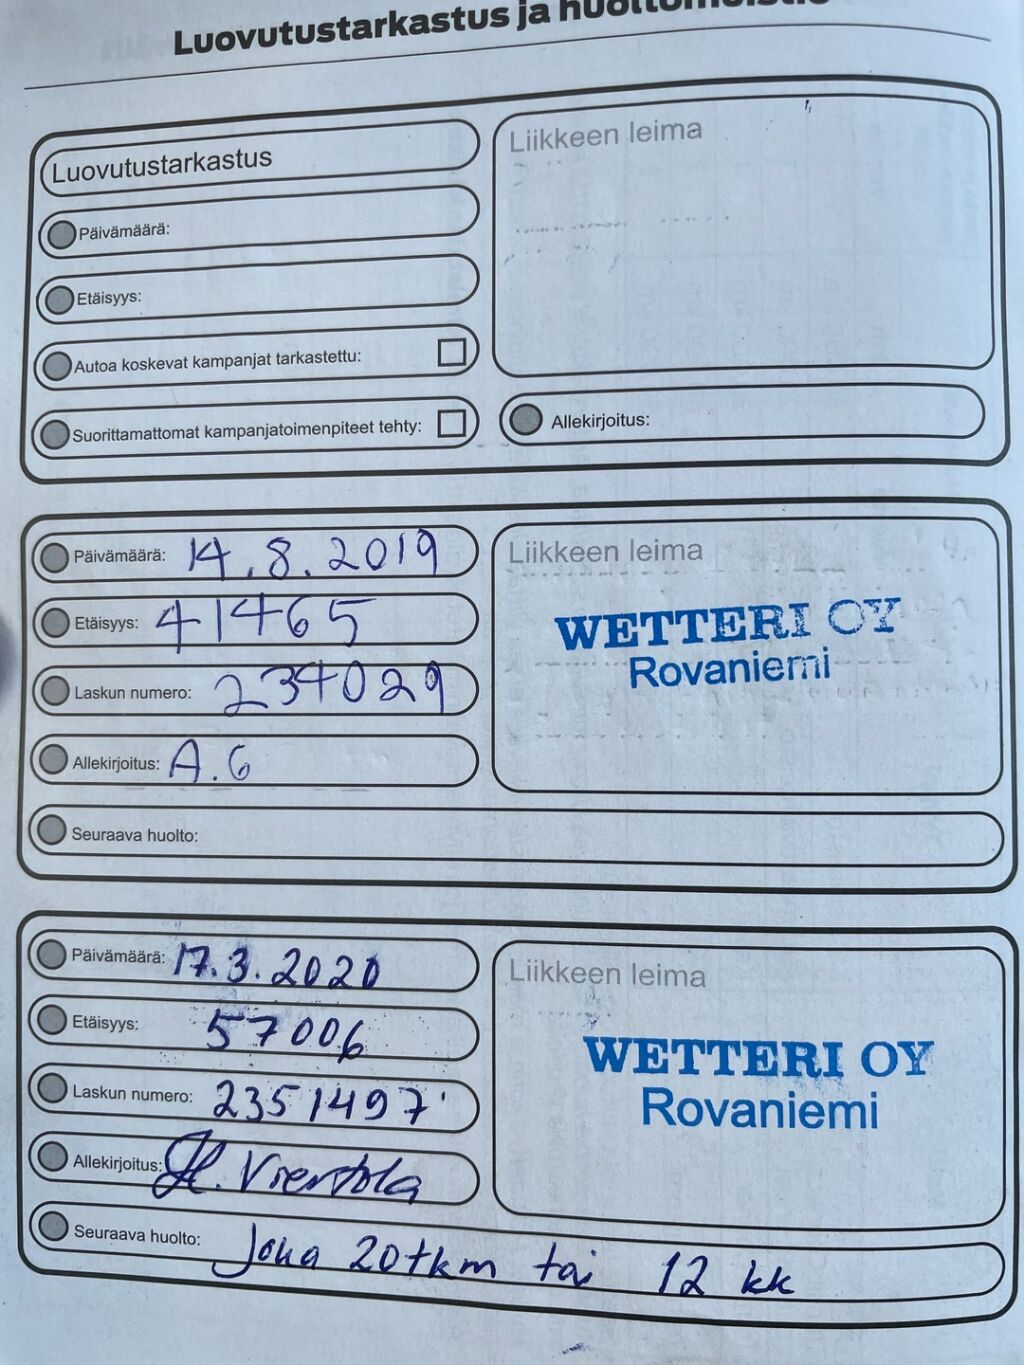 Luovutustarkastus ja
Luovutustarkastus
Päivämäärä:
Etäisyys:
Autoa koskevat kampanjat tarkastettu:
Suorittamattomat kampanjatoimenpiteet tehty:
Liikkeen leima
Allekirjoitus:
Päivämäärä: 14.8.2019
Etäisyys: 41465
Laskun numero: 234029
Allekirjoitus: A.G
Seuraava huolto:
Liikkeen leima
WETTERI OY
Rovaniemi
Päivämäärä: 17.3.2020
Etäisyys: 57006
Laskun numero: 2351497
Allekirjoitus: H. Viertola
Seuraava huolto: Joka 20tkm tai 12 kk
Liikkeen leima
WETTERI OY
Rovaniemi